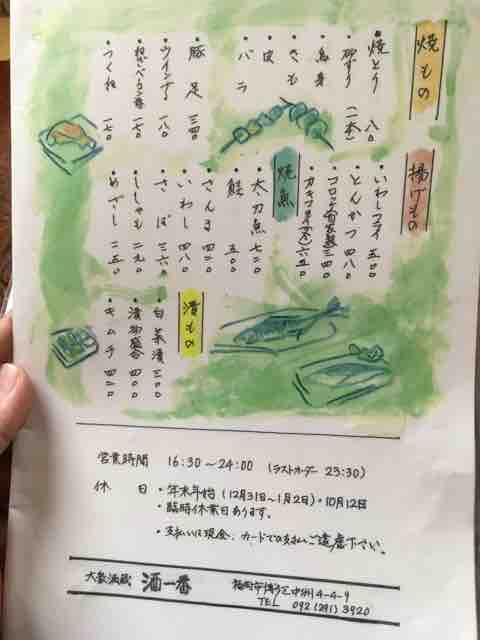 焼もの
・焼とり 八〇
・砂ずり (一本)
・鳥身
・きも
・皮
・バラ
・豚足 三四〇
・ウインナー 一八〇
・ねぎベーコン巻 一七〇
・つくね 一七〇
揚げもの
・いわしフライ 五〇〇
・とんかつ 四八〇
・コロッケ(自家製) 三四〇
・カキフライ 六五〇
焼魚
・太刀魚 七二〇
・鮭 五〇〇
・さんま 四二〇
・いわし 四八〇
・さば 三六〇
・ししゃも 二九〇
・めざし 二五〇
漬もの
・白菜漬 三〇〇
・漬物盛合 四〇〇
・キムチ 四二〇
営業時間 16:30〜24:00 (ラストオーダー 23:30)
休日・年末年始(12月31日〜1月2日)・10月12日
・臨時休業日あります。
・支払いは現金、カードでの支払いご遠慮下さい。
大衆酒蔵 酒一番 福岡市博多区中洲4-4-9
TEL 092(291)3920